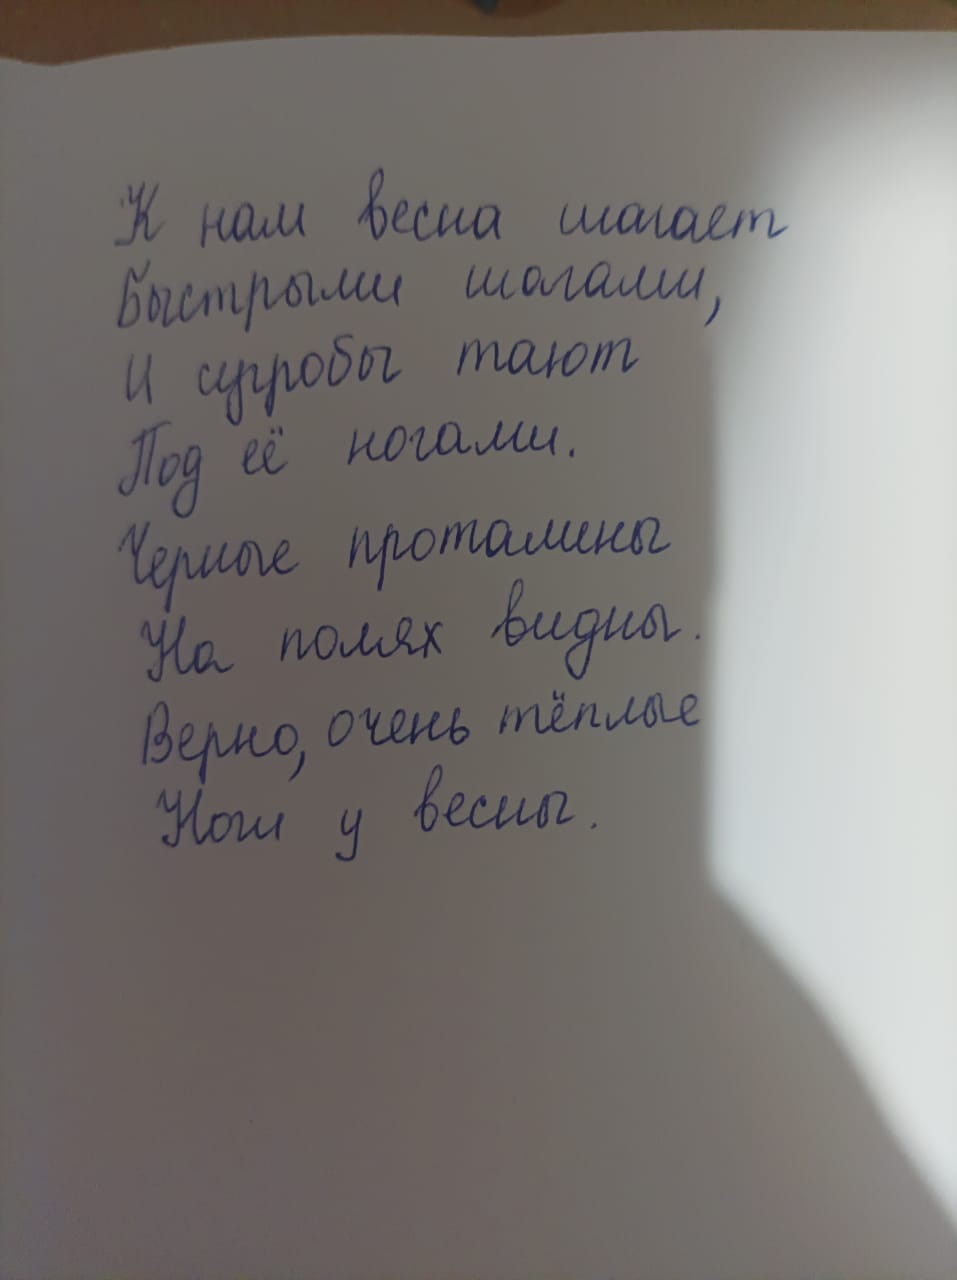 К нам весна шагает
Быстрыми шагами,
И сугробы тают
Под её ногами.
Черные проталины
На полях видны.
Верно, очень тёплые
Ноги у весны.